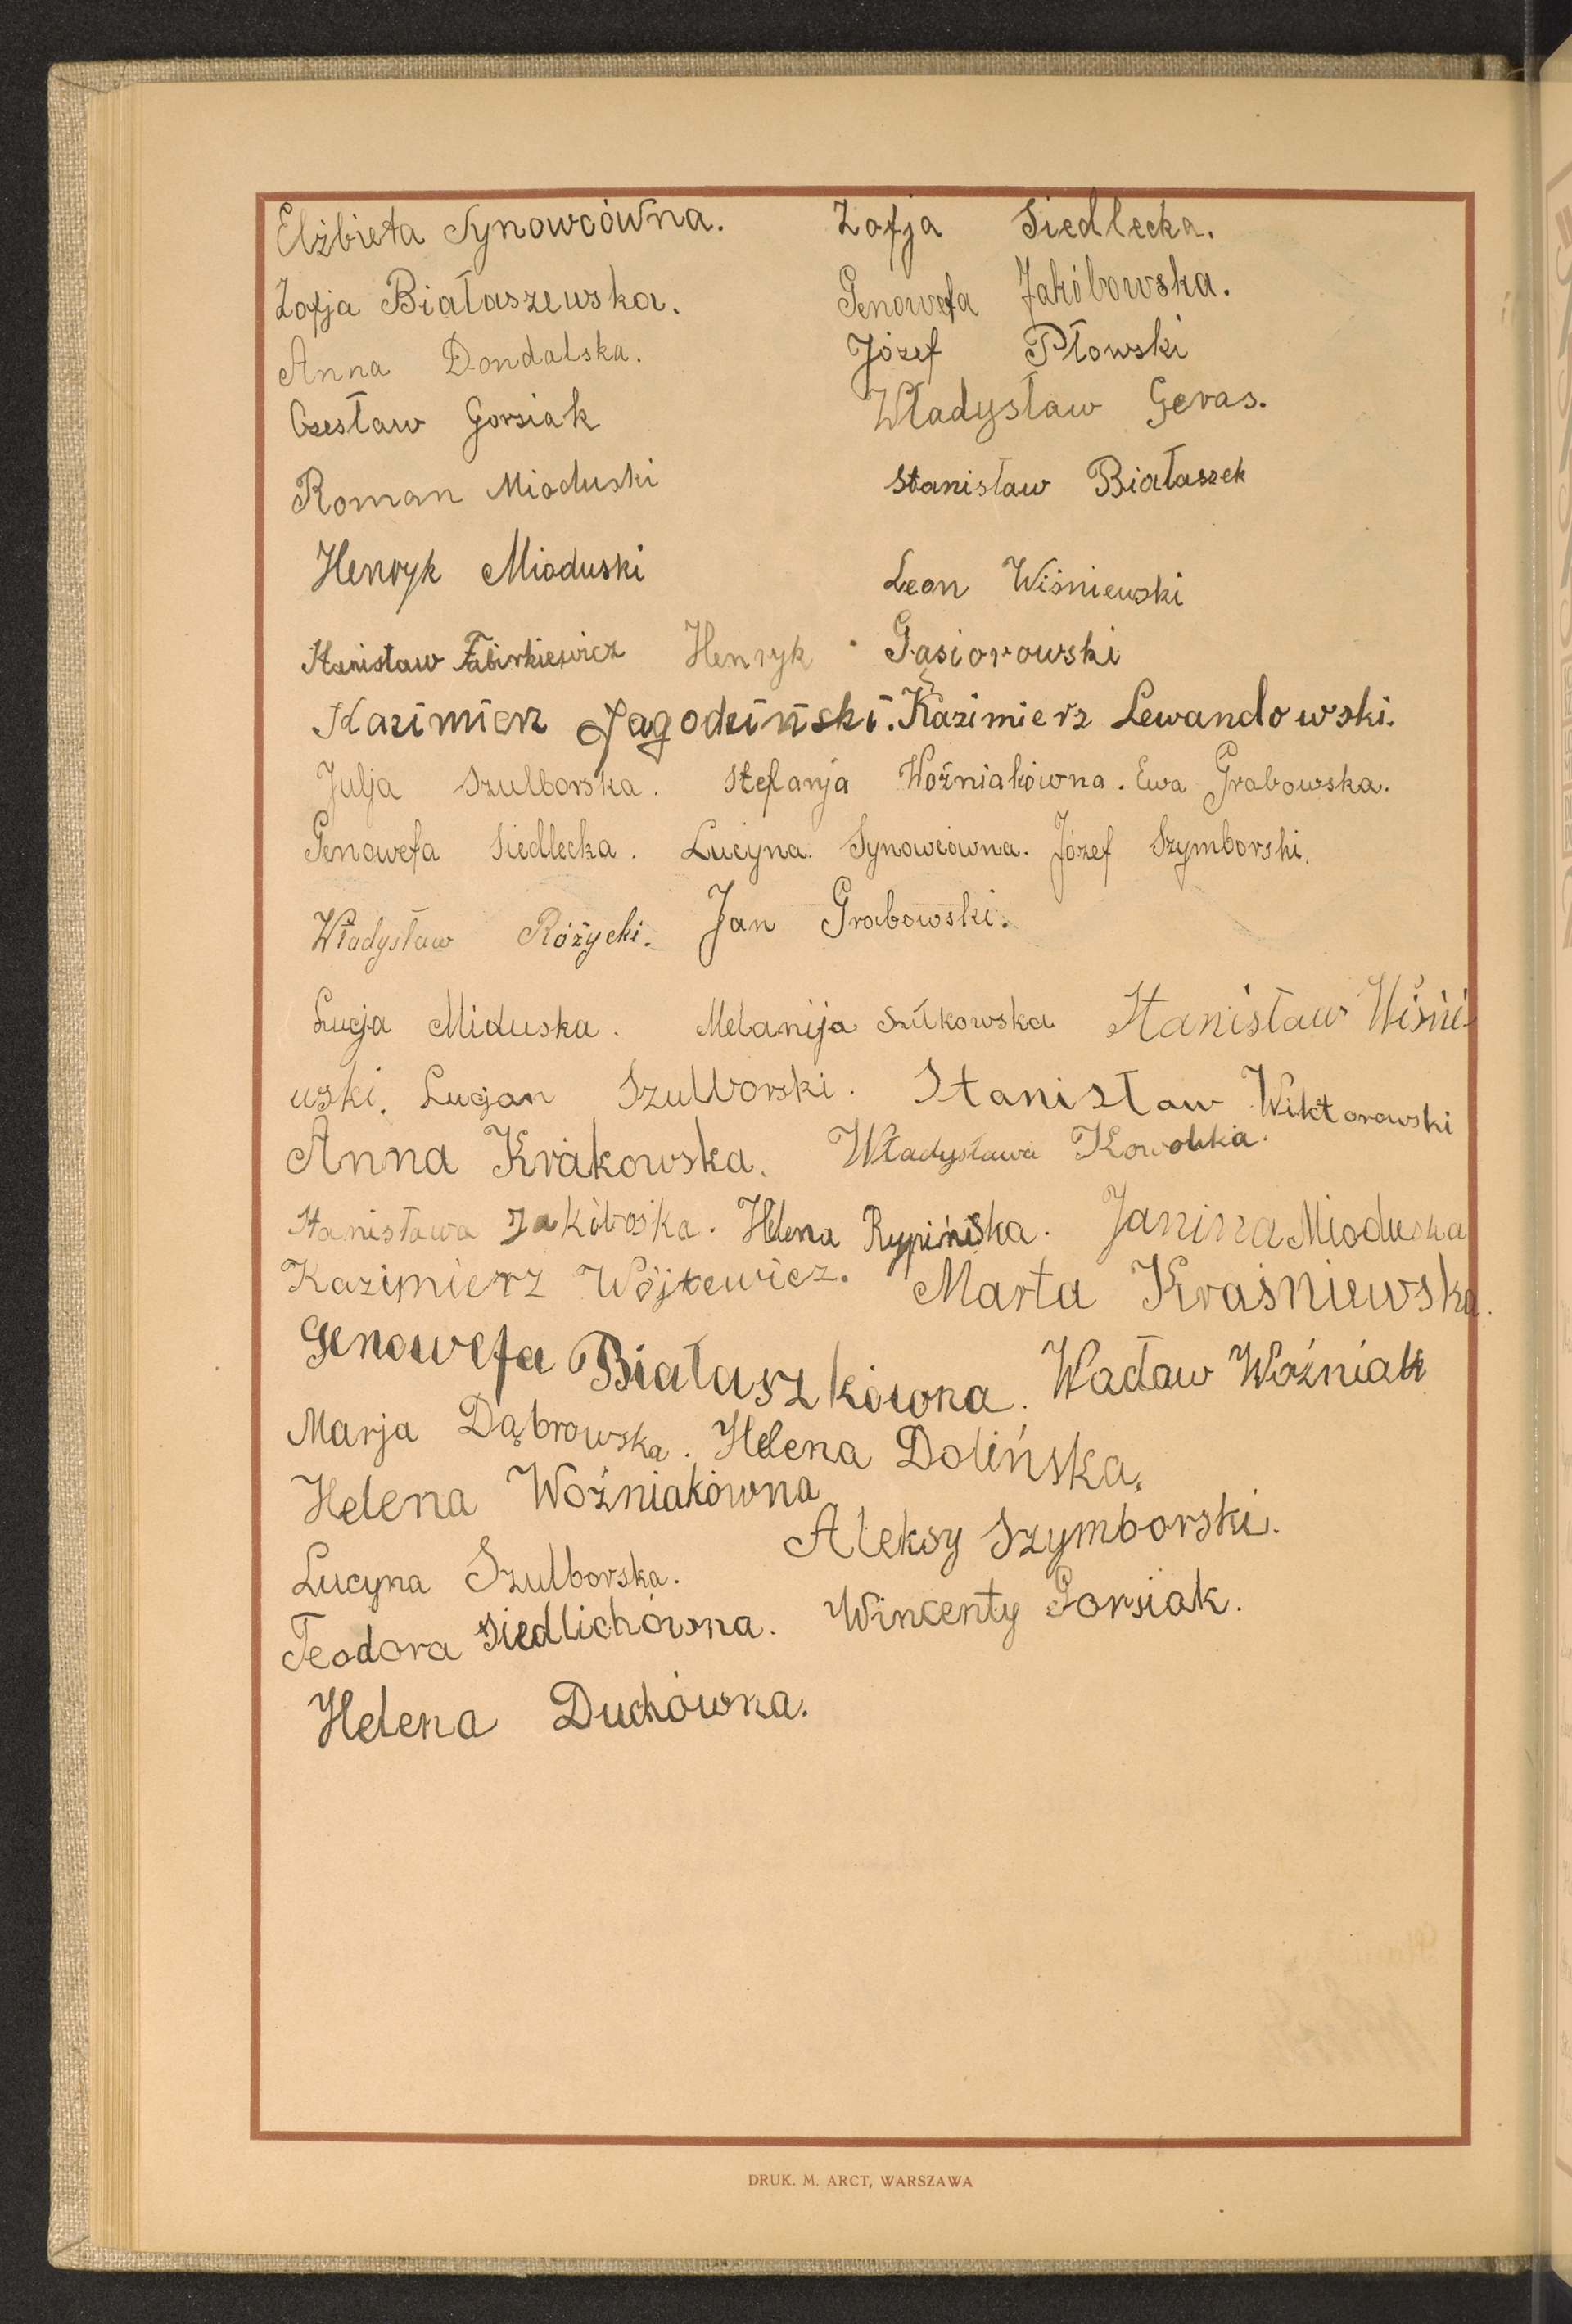 Elżbieta Synowcówna. Zofja Siedlecka.
Zofja Białaszewska. Genowefa Jakóbowska.
Anna Dondalska. Józef Płowski
Czesław Gorsiak Władysław Geras.
Roman Mioduski Stanisław Białaszek
Henryk Mioduski Leon Wiśniewski
Stanisław Henryk Gąsiorowski
Kazimierz Jagodziński. Kazimierz Lewandowski.
Julja Szulborska. Stefanja Woźniakówna. Ewa Grabowska.
Genowefa Siedlecka. Lucyna Synowcówna. Józef Szymborski.
Władysław Różycki. Jan Grabowski.
Lucja Miduska. Melanija Stanisław Wiśni-
wski. Lucjan Szulborski. Stanisław Wiktorowski
Anna Krakowska. Władysława
Stanisława Jakóboska. Helena Rypińska. Janina Mioduska
Kazimierz Wójtewicz. Marta Kraśniewska.
Genowefa Białaszkówna. Wacław Woźniak
Marja Dąbrowska. Helena Dolińska.
Helena Woźniakówna
Aleksy Szymborski.
Lucyna Szulborska.
Teodora Siedlichówna. Wincenty Gorsiak.
Helena Duchówna.
DRUK. M. ARCT, WARSZAWA